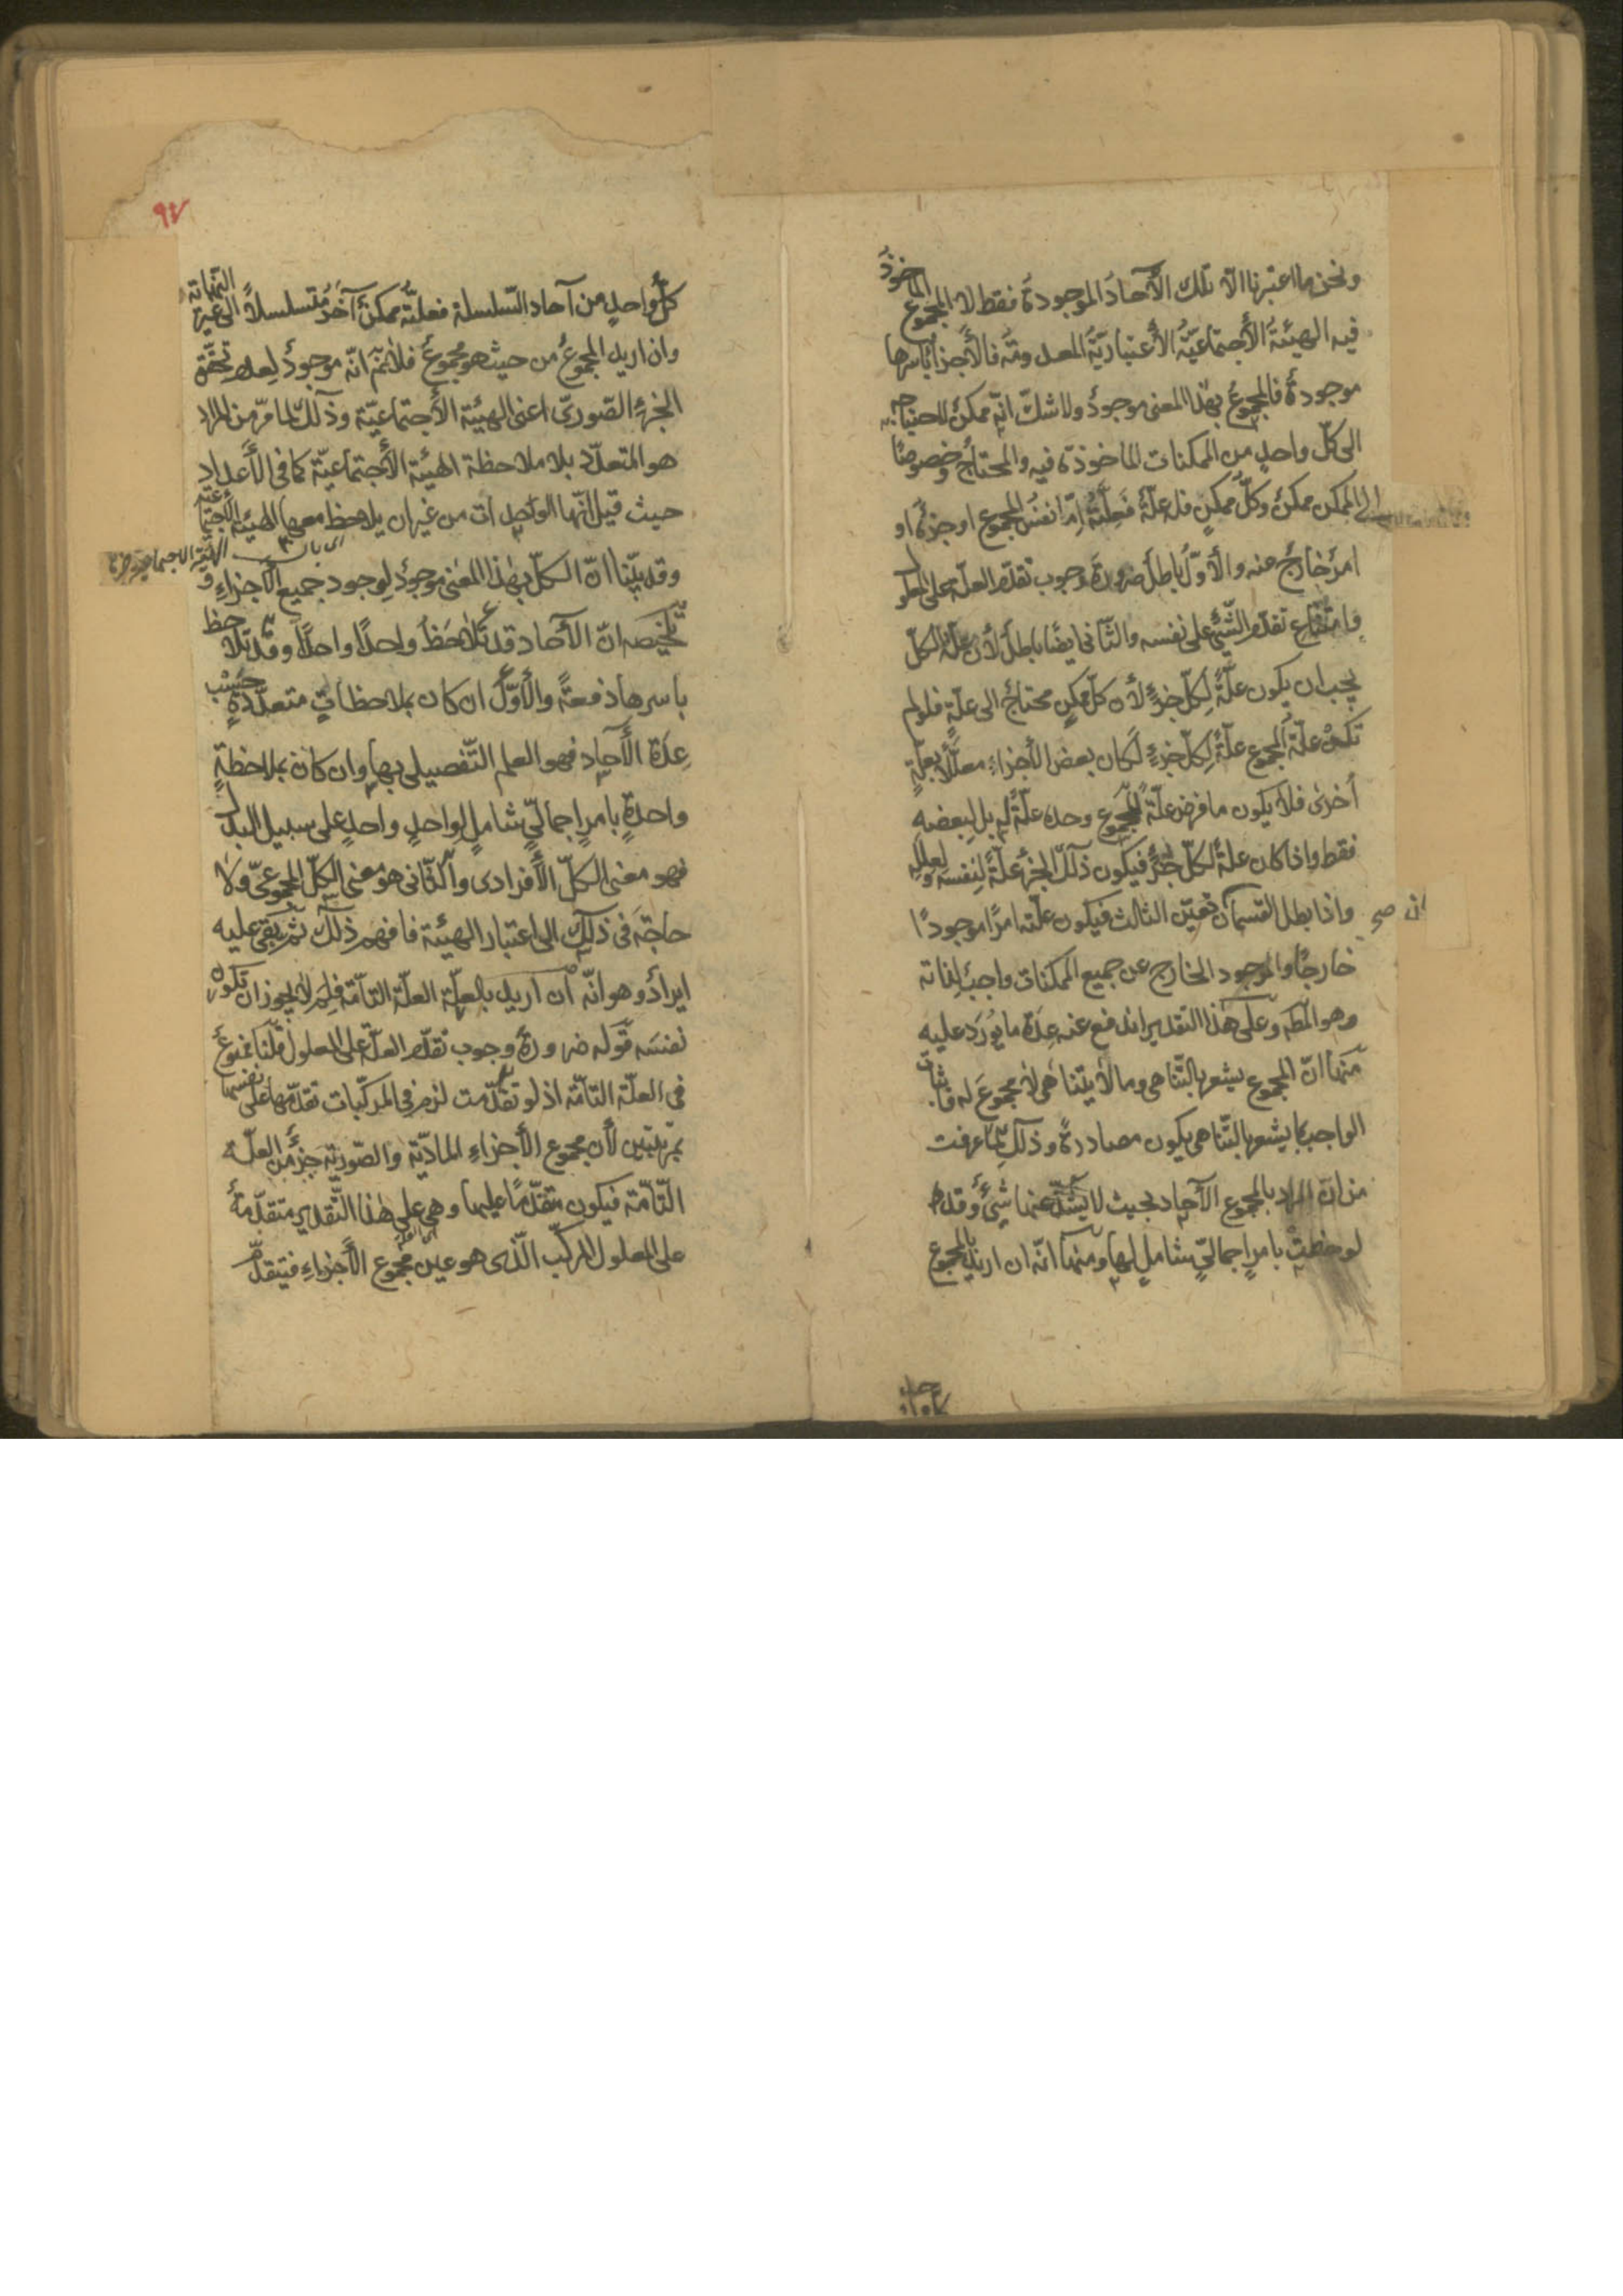 ونحن ما اعتبرنا الّا تلك الآحاد الموجودة فقط لا المجموع المأخوذ
فيه الهيئة الأجتماعيّة الأعتباريّة المعدومة فالأجزاء بأسرها
موجودة فالمجموع بهذا المعنى موجود ولا شكّ انّه ممكن لاحتياجه
الى كلّ واحد من الممكنات المأخوذة فيه والمحتاج وخصوصًا
الى الممكن ممكن وكلّ ممكن فله علّة فعلّته امّا نفس المجموع او جزئه او
امر خارج منه والأوّل باطل ضرورة وجوب تقدّم العلّة على المعلول
وامتناع تقدّم الشّيئ على نفسه والثّانى ايضًا باطل لأن علّة الكلّ
يجب ان يكون علّة لكلّ جزء لأن كلّ ممكن محتاج الى علّة فلو لم
تكن علّة المجموع علّة لكلّ جزء لكان بعض الأجزاء معلّلًا بعلّة
أخرى فلا يكون ما فرض علّة للمجموع وحده علّة له بل لبعضه
فقط واذا كان علة لكلّ جزء فيكون ذلك الجزء علّة لنفسه ولعلله
واذا بطل القسمان تعيّن الثالث فيكون علّته امرًا موجودًا
خارجًا والموجود الخارج عن جميع الممكنات واجب لذاته
وهو المط وعلى هذا التقدير اندفع عنه عدة ما يورد عليه
منها انّ المجموع يشعر بالتّناهى وما لا يتناهى لا مجموع له فاثبات
الواجب بما يشعر بالتّناهى يكون مصادرة وذلك لما عرفت
من ان المراد بالمجموع الآحاد بحيث لا يشذّ عنها شيئ وقد
لوحظت بامر اجماليّ شامل لها ومنها انّه ان اريد بالمجموع
ان صح
٩٧
كلّ واحد من آحاد السّلسلة فعلّته ممكن آخر متسلسلًا الى غير النّهاية
وان اريد المجموع من حيث هو مجموع فلا نمّ انّه موجود لعدم تحقّق
الجزء الصّوريّ اعنى الهيئة الأجتماعيّة وذلك لما مرّ من المراد
هو المتعدّد بلا ملاحظة الهيئة الأجتماعيّة كما فى الأعداد
حيث قيل انّها الواحدات من غير ان يلاحظ معها الهيئة الأجتماعيّة
وقد بيّنا انّ الكلّ بهذا المعنى موجود لوجود جميع الأجزاء و
تلخيصه انّ الآحاد قد تلاحظ واحدًا واحدًا وقد تلاحظ
باسرها دفعة والأوّل ان كان بملاحظات متعدّدة حسب
عدة الآحاد فهو العلم التّفصيلى بها وان كان بملاحظة
واحدة بامر اجماليّ شامل لواحد واحد على سبيل البدل
فهو معنى الكلّ الأفرادى والثّانى هو معنى الكلّ المجموعىّ ولا
حاجة فى ذلك الى اعتبار الهيئة فافهم ذلك ثمّ بقى عليه
ايراد وهو انّه ان اريد بالعلّة العلّة التامّة فلم لا يجوز ان تكون
نفسه قوله ضرورة وجوب تقدّم العلّة على المعلول قلنا ممنوع
فى العلّة التامّة اذ لو تقدّمت لزم فى المركّبات تقدّمها على نفسها
بمرتبتين لأن مجموع الأجزاء المادّية والصّورية جزء من العلّة
التّامّة فيكون متقدّمًا عليها وهى على هذا التّقدير متقدّمة
على المعلول المركّب الّذى هو عين مجموع الأجزاء فيتقدّم